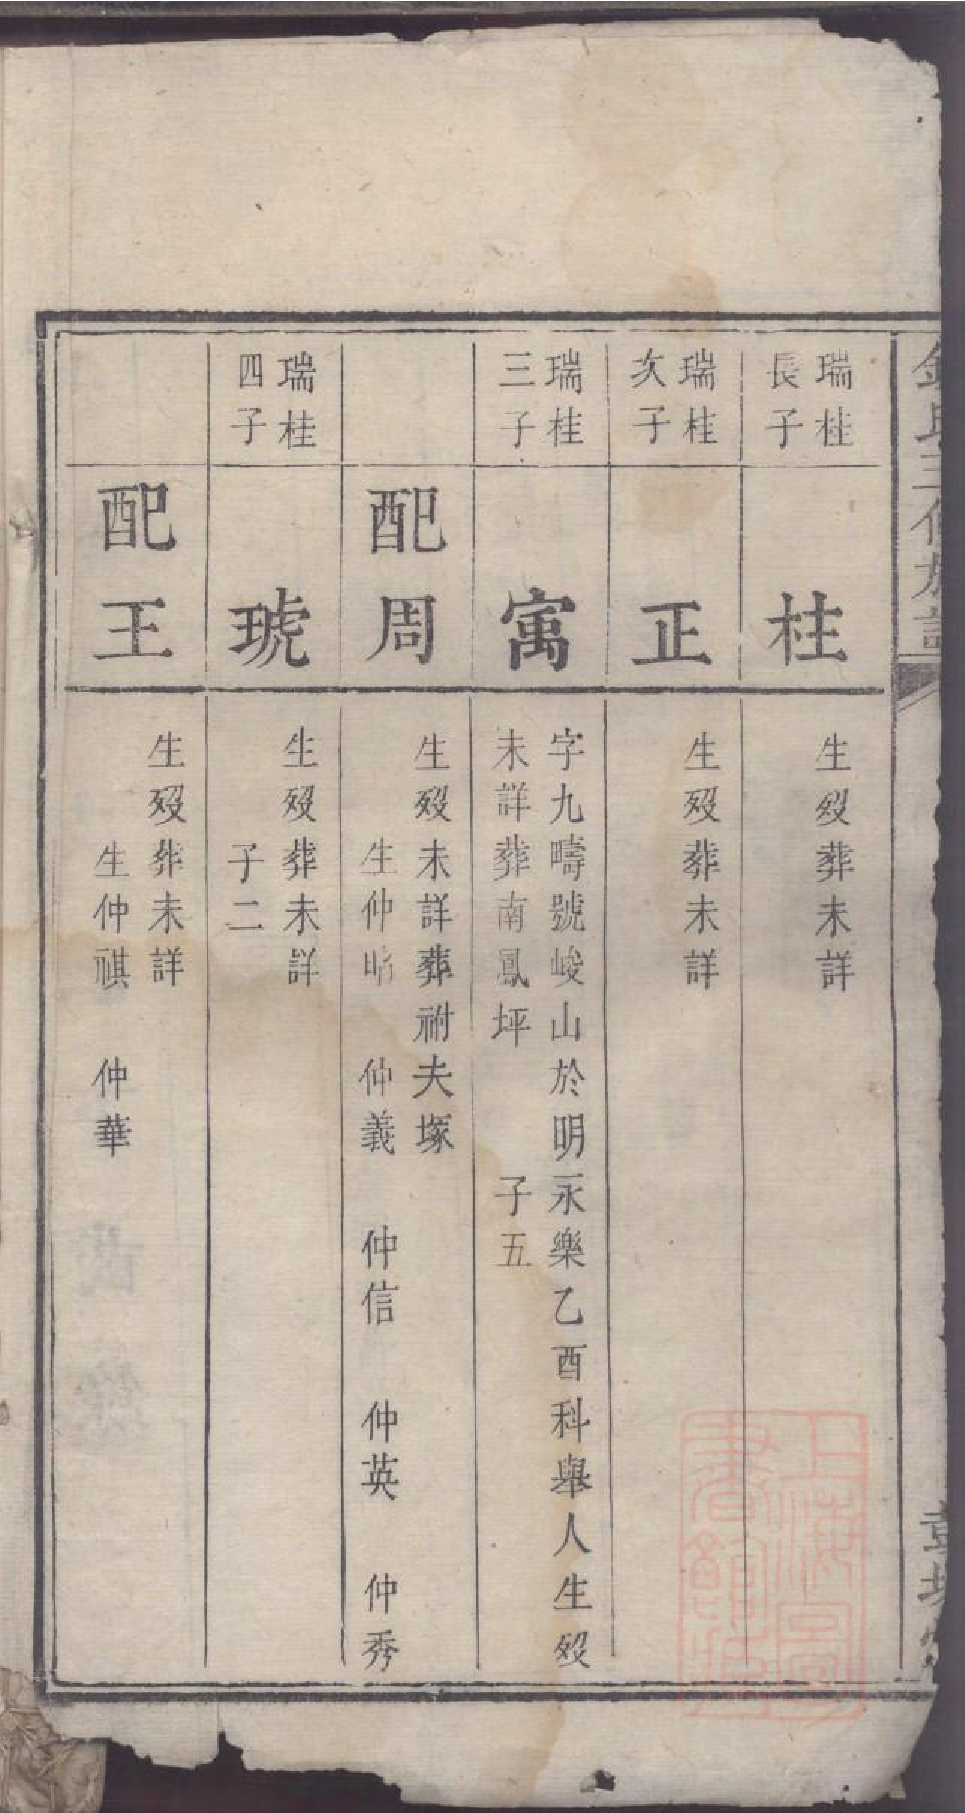 氏三修族譜
瑞桂
長子
柱
生歿葬未詳
瑞桂
次子
正
生歿葬未詳
瑞桂
三子
寓
字九疇號峻山於明永樂乙酉科舉人生歿
未詳葬南鳳坪 子五
配周
生歿未詳葬祔夫塚
生仲昭 仲義 仲信 仲英 仲秀
瑞桂
四子
琥
生歿葬未詳
子二
配王
生歿葬未詳
生仲祺 仲華
上海圖書館藏